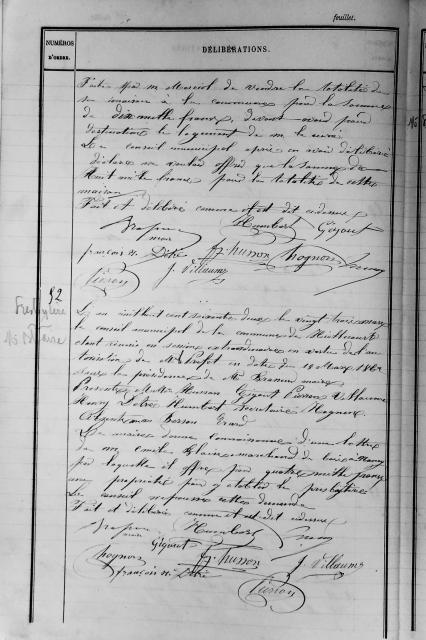 feuillet.
NUMÉROS D'ORDRE.
DÉLIBÉRATIONS.
Faite par M de vendre la totalité de
sa maison à la commune pour la somme
de dix mille francs, devant avoir pour
destination le logement de M le curé.
Le conseil municipal après en avoir délibéré
déclare ne vouloir offrir que la somme de
Huit mille francs pour la totalité de cette
maison.
Fait et délibéré comme et est dit cidessus
maire Humbert Gigout
françois n. Détré husson hognon
J. Villaume
52
Presbytère
L'an mil huit cent soixante deux le vingt trois mars
le conseil municipal de la commune de
étant réuni en session extraordinaire en vertu de l'au
torisation de Mr le Préfet en date du 18 Mars 1862
sous la présidence de Mr maire
Présents MM. Husson Gigout Villaume
Henry Détré Humbert Secrétaire Hognon
Le maire donne connaissance d'une lettre
de M. marchand de bois à Nancy
par laquelle il offre pour quatre mille francs
une propriété pour y établir le presbytère
Le conseil refuse cette demande
Fait et délibéré comme et est dit cidessus
maire Humbert
hognon Gigout husson J. Villaume
françois n. Détré